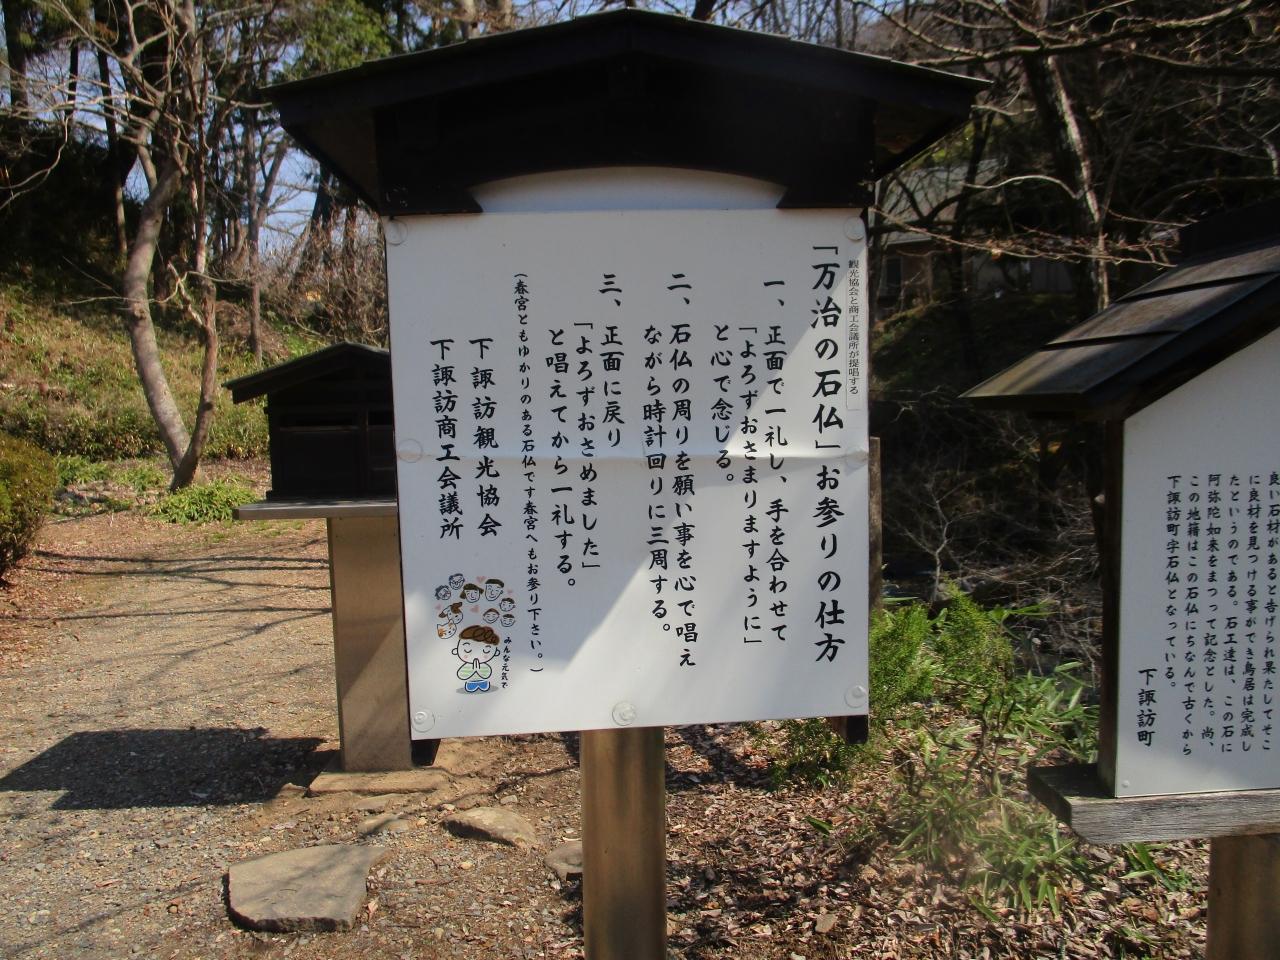 観光協会と商工会議所が提唱する
「万治の石仏」お参りの仕方
一、正面で一礼し、手を合わせて
「よろずおさまりますように」
と心で念じる。
二、石仏の周りを願い事を心で唱え
ながら時計回りに三周する。
三、正面に戻り
「よろずおさめました」
と唱えてから一礼する。
(春宮ともゆかりのある石仏です春宮へもお参り下さい。)
下諏訪観光協会
下諏訪商工会議所
みんな元気で
良い石材があると告げられ果たしてそこ
に良材を見つける事ができ鳥居は完成し
たというのである。石工達は、この石に
阿弥陀如来をまつって記念とした。尚、
この地籍はこの石仏にちなんで古くから
下諏訪町字石仏となっている。
下諏訪町